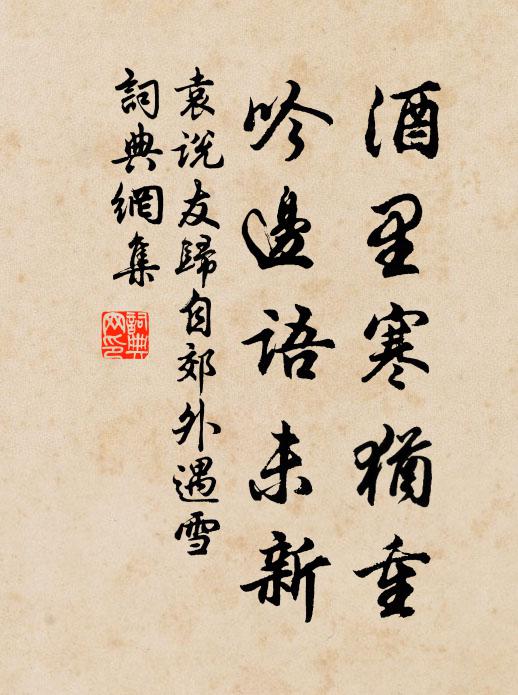 酒里寒猶重
吟邊語未新
袁说友歸自郊外遇雪
詞典網集
詞典網印